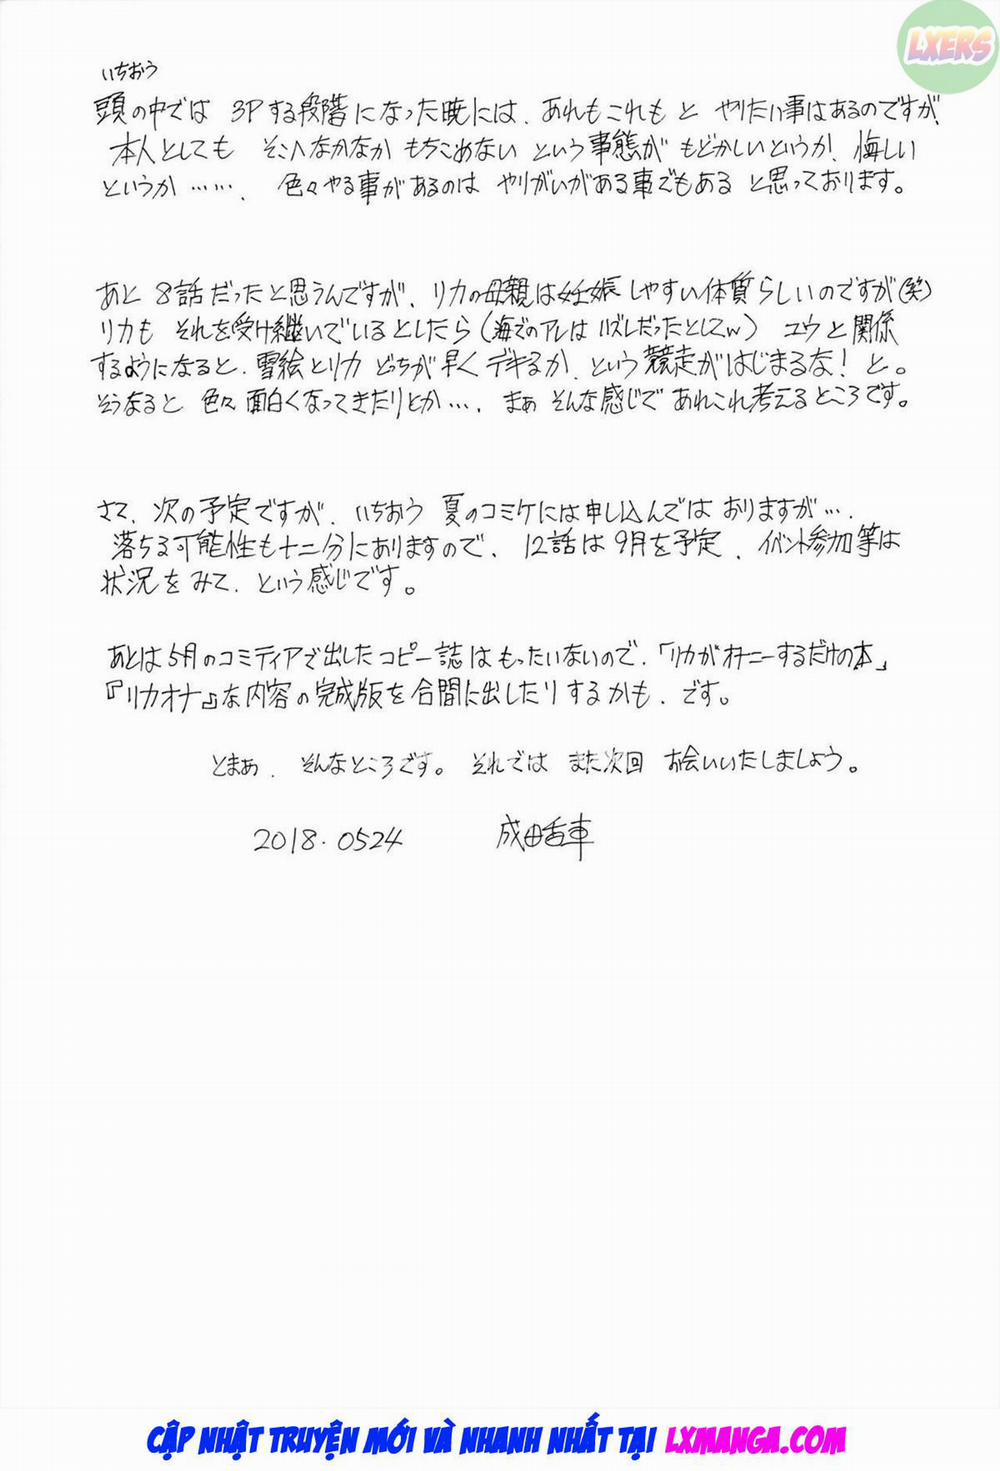 LXERS
いちおう
頭の中では 3Pする段階になった暁には、あれもこれもと やりたい事はあるのですが、
本人としても そこへなかなか もちこめない という事態が もどかしいというか、悔しい
というか……、色々やる事があるのは やりがいがある事でもある と思っております。
あと 8話だったと思うんですが、リカの母親は妊娠しやすい体質らしいのですが(笑)
リカも それを受け継いでいるとしたら(海でのアレはハズレだったとしてw) ユウと関係
するようになると、雪絵とリカ どっちが早くデキるか、という競走がはじまるな!と。
そうなると 色々面白くなってきたりとか…、まぁ そんな感じで あれこれ考えるところです。
さて、次の予定ですが、いちおう 夏のコミケには申し込んでは おりますが…、
落ちる可能性も十二分にありますので、12話は9月を予定、イベント参加等は
状況をみて、という感じです。
あとは5月のコミティアで出したコピー誌はもったいないので、「リカがオナニーするだけの本」
『リカオナ』な内容の完成版を合間に出したりするかも、です。
とまぁ、そんなところです。それでは また次回 お会いいたしましょう。
2018.0524 成田香車
CẬP NHẬT TRUYỆN MỚI VÀ NHANH NHẤT TẠI LXMANGA.COM